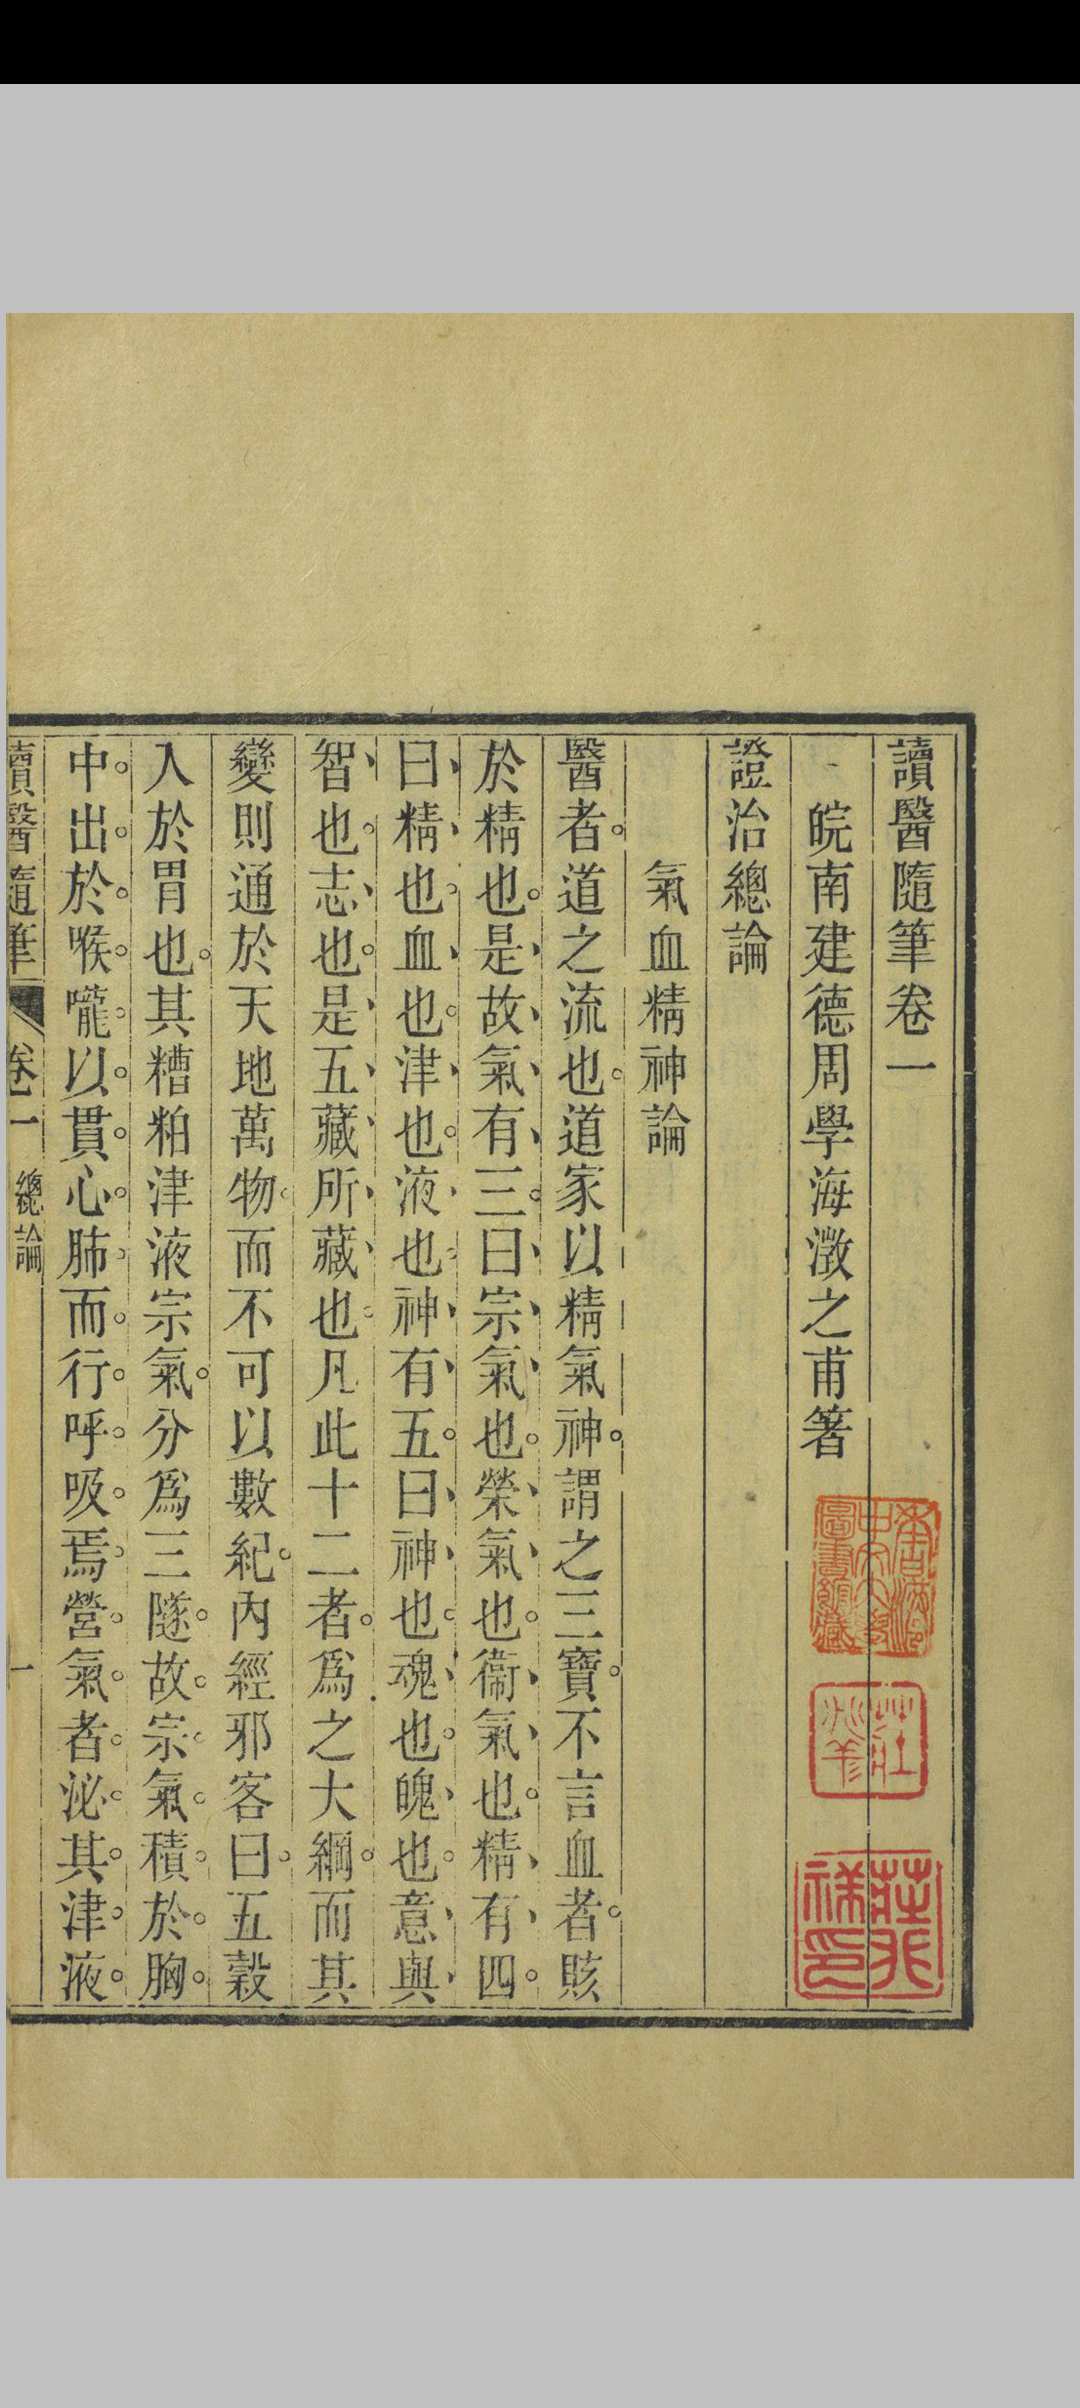 讀醫隨筆卷一
皖南建德周學海澂之甫箸
證治總論
氣血精神論
醫者。道之流也。道家以精氣神。謂之三寶。不言血者。賅
於精也。是、故、氣、有、三。曰、宗、氣、也。榮、氣、也。衞、氣、也。精、有、四。
曰、精、也。血、也。津、也。液、也。神、有、五。曰、神、也。魂、也。魄、也。意、與、
智、也。志、也。是、五、藏、所、藏、也。凡此十二者。爲之大綱。而其
變則通於天地萬物。而不可以數紀。內經邪客曰。五穀
入於胃也。其糟粕津液宗氣。分爲三隧。故。宗。氣。積。於。胸。
中。出。於。喉。嚨。以。貫。心。肺。而。行。呼。吸。焉。營。氣。者。泌。其。津。液。
讀醫隨筆 卷一 總論 一
莊兆祥印